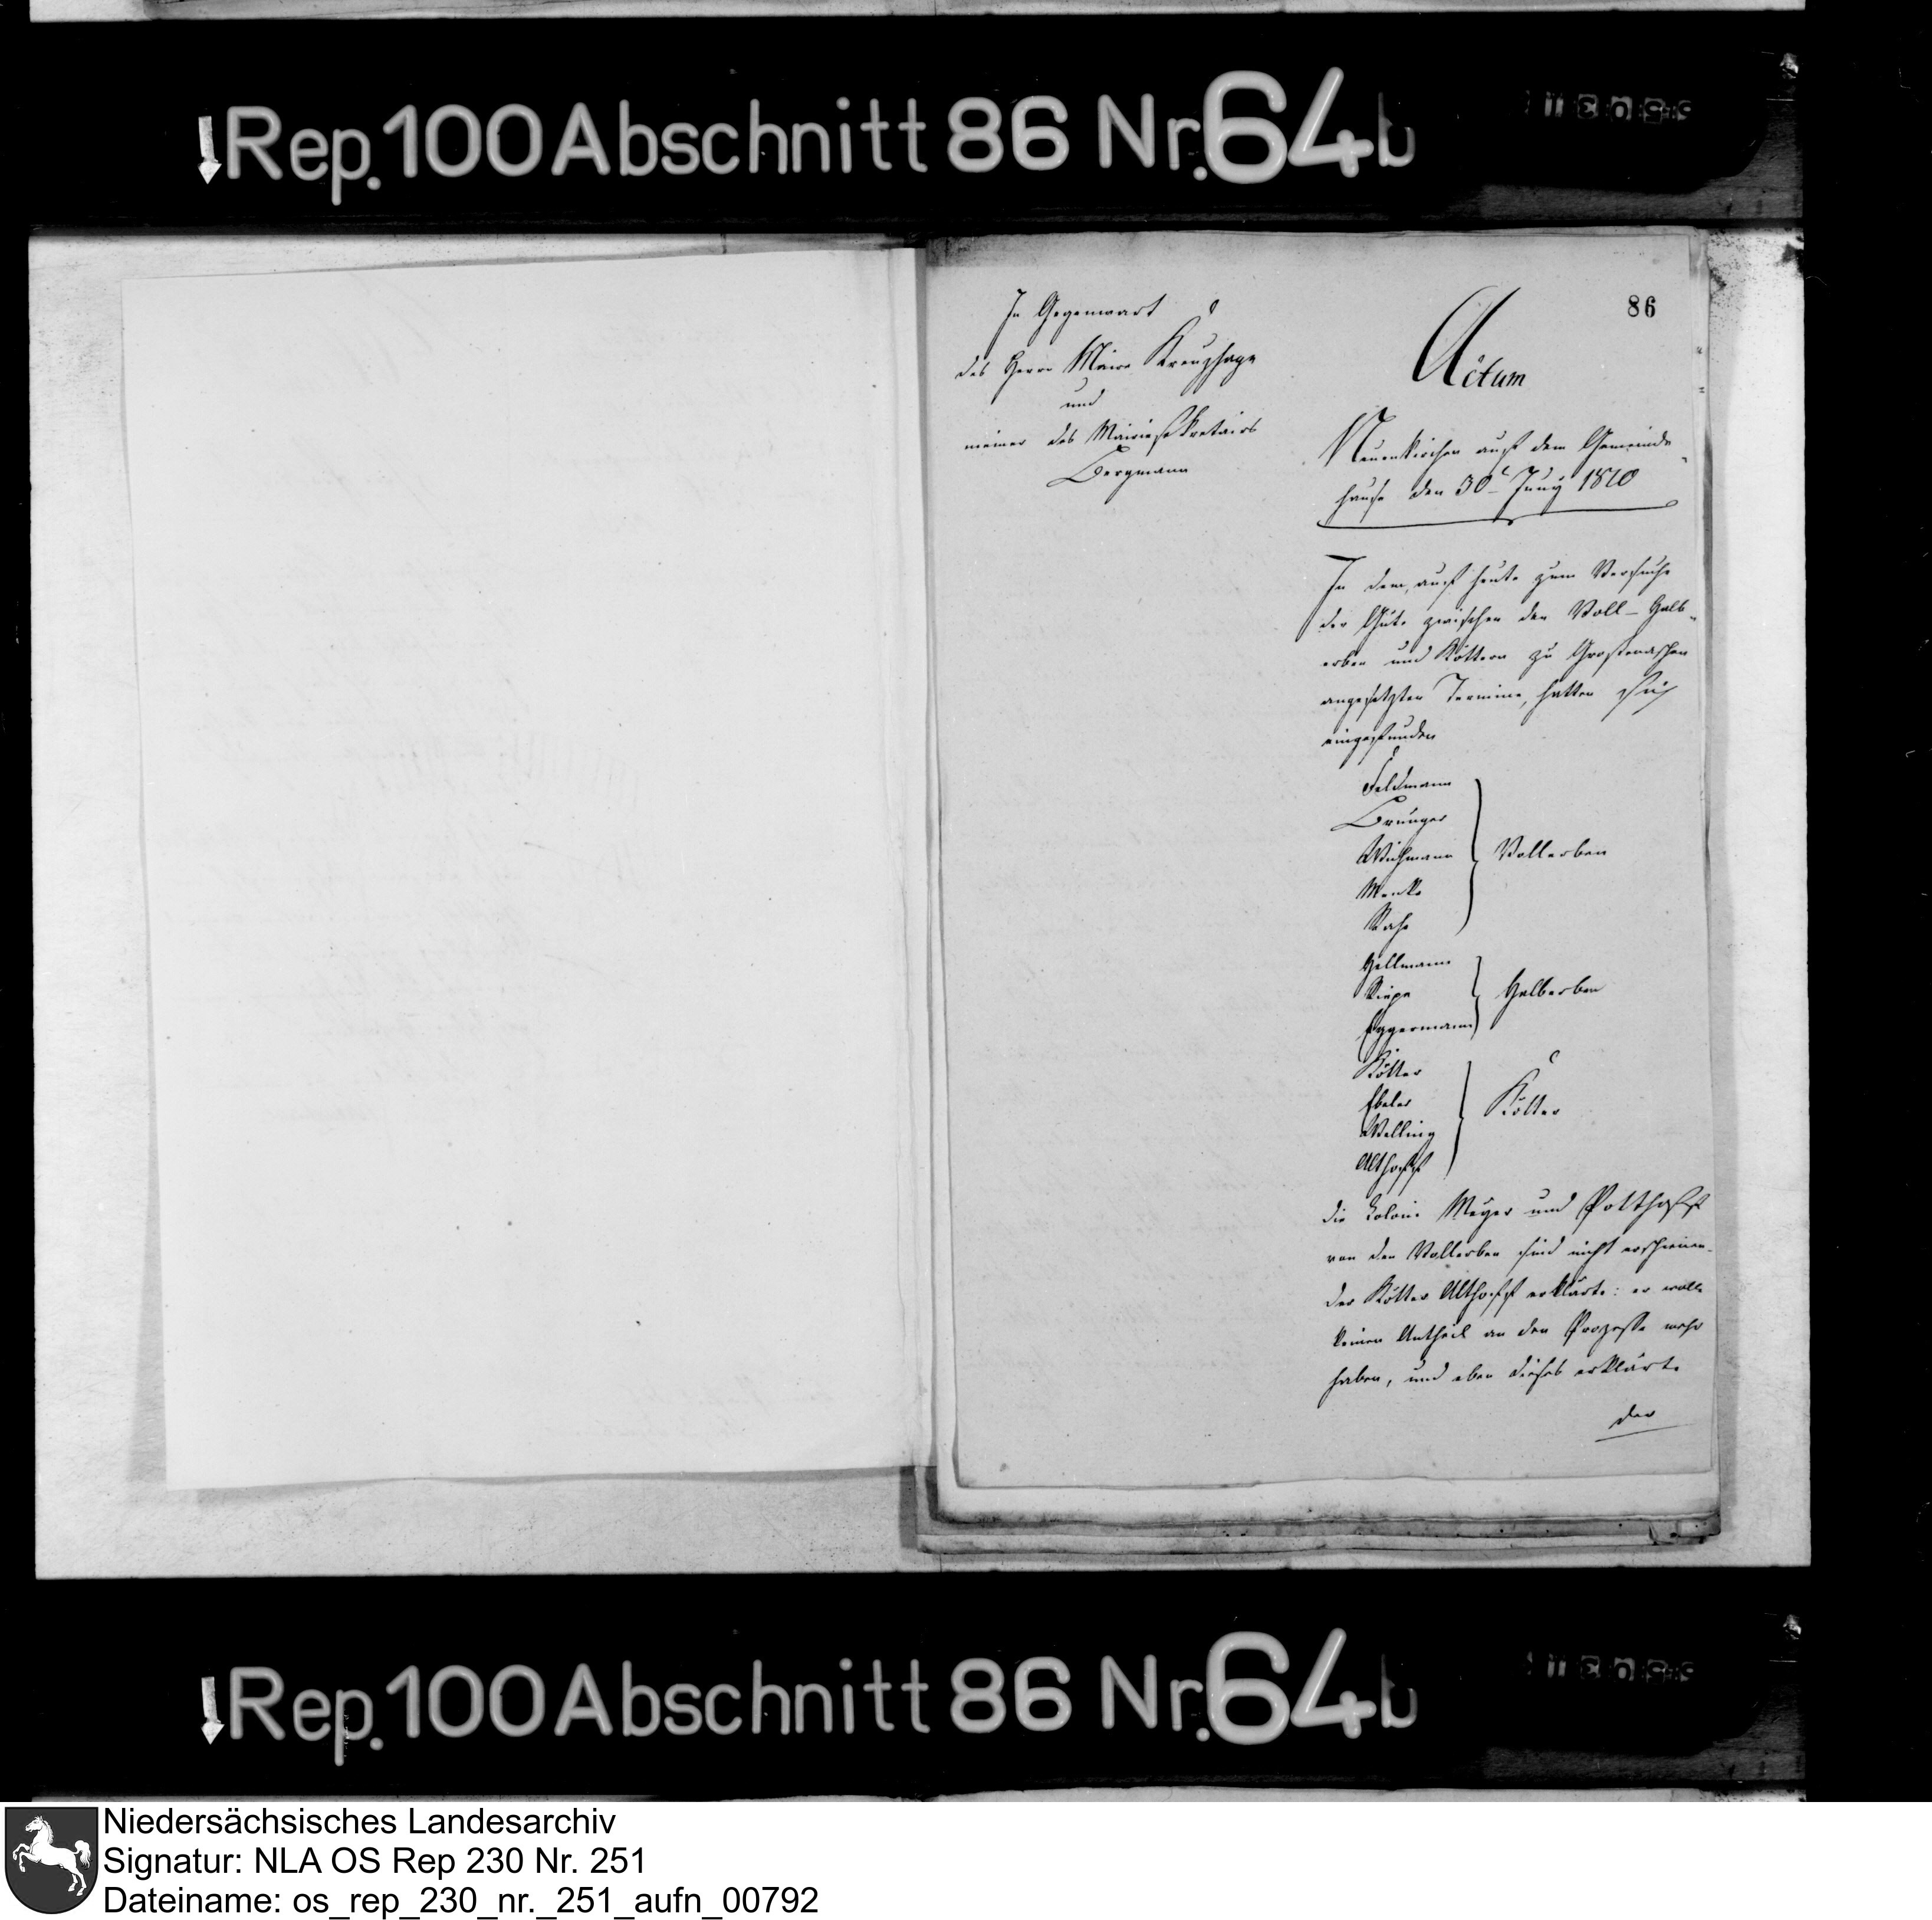 Rep. 100 Abschnitt 86 Nr. 64b
86
In Gegenwart
des Herrn Maire Kreuzhage
und
meiner des Mairiesekretairs
Bergmann
Actum
Neuenkirchen auf dem Gemeinde-
hause den 30t Juny 1810
In dem, auf heute zum Versuche
der Güte zwischen den Voll- Halb-
erben und Köttern zu Grosenaschen
angesetzten Termine, hatten sich
eingefunden
Feldmann
Brünger
Wichmann
Menke
Rahe
Vollerben
Hellmann
Kiepe
Eggermann
Halberben
Kötter
Ebeler
Welling
Althoff
Kötter
die Coloni Meyer und Potthoff
von den Vollerben sind nicht erschienen.
der Kötter Althoff erklärte: er wolle
keinen Antheil an den Prozesse mehr
haben, und eben dieses erklärte
der
Rep. 100 Abschnitt 86 Nr. 64b
Niedersächsisches Landesarchiv
Signatur: NLA OS Rep 230 Nr. 251
Dateiname: os_rep_230_nr._251_aufn_00792